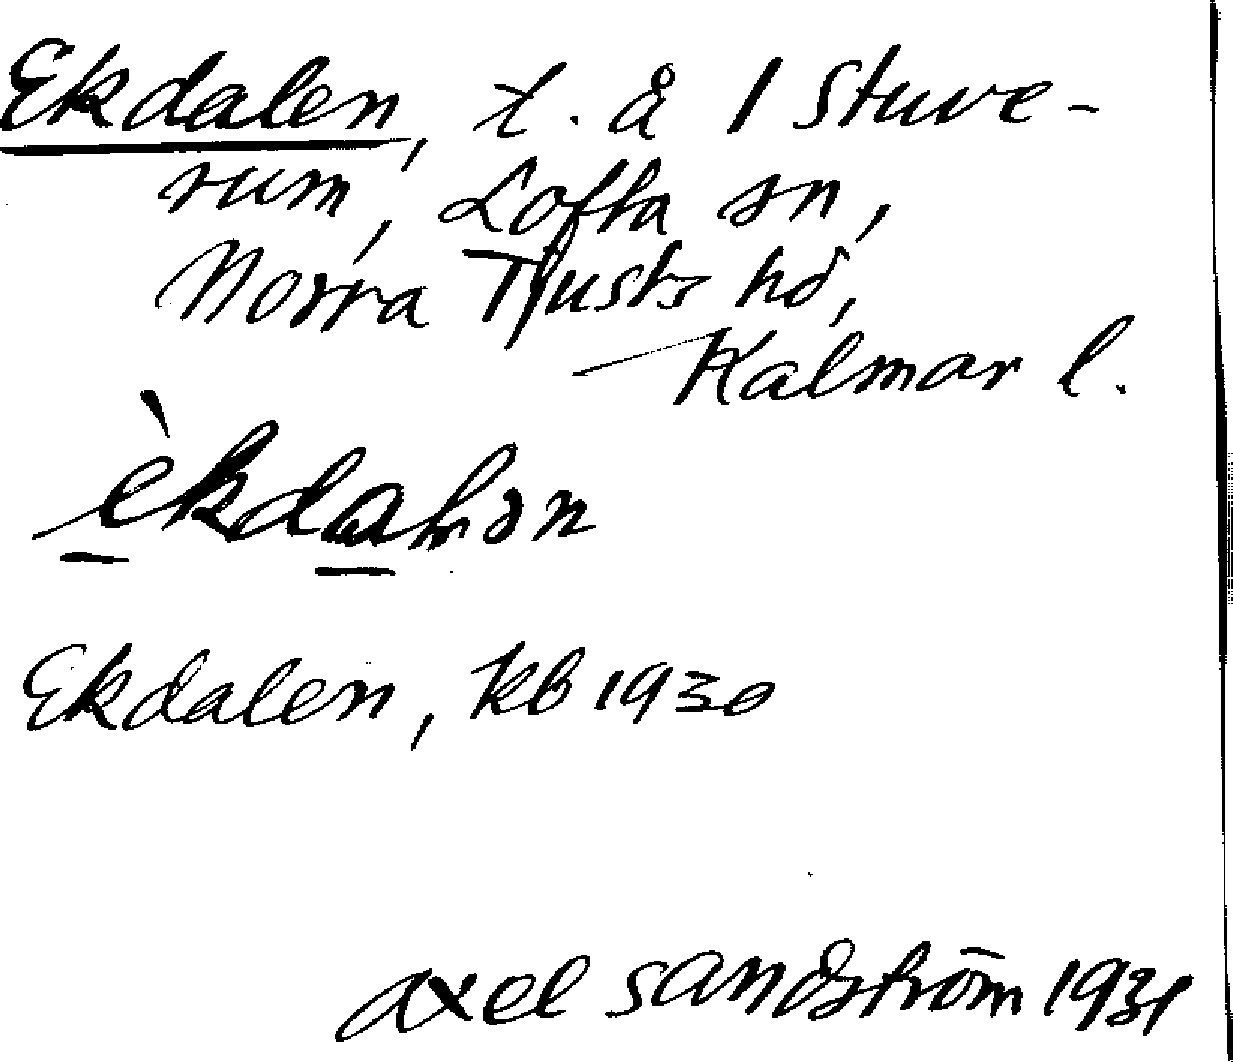 Ekdalen, t. å 1 Stuve-
rum, Lofta sn,
Norra Tjusts hd,
Kalmar l.
Ekdalen, kb 1930
Axel Sandström 1931